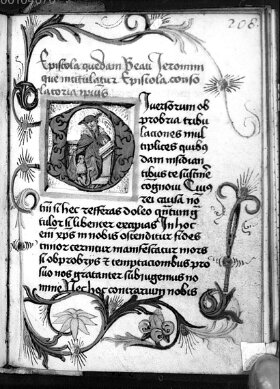 206
Epistola quedam Beati Jeronimi
que intitulatur Epistola conso
latoria ipius
Diuersorum ob
probria tribu
laciones mul
tiplices quibꝰ
dam insidian
tibus te sustine
cognoui Cuiꝰ
rei causa nō
tm̄ si hec refferas doleo
si libencer
em xp̄s in nobis ostenditur fides
timor cernitur manifestatur mors
si obprobrijs et temptacionibus pro
suo nos gratanter subiugemus no
mine Nec hoc contrarium nobis